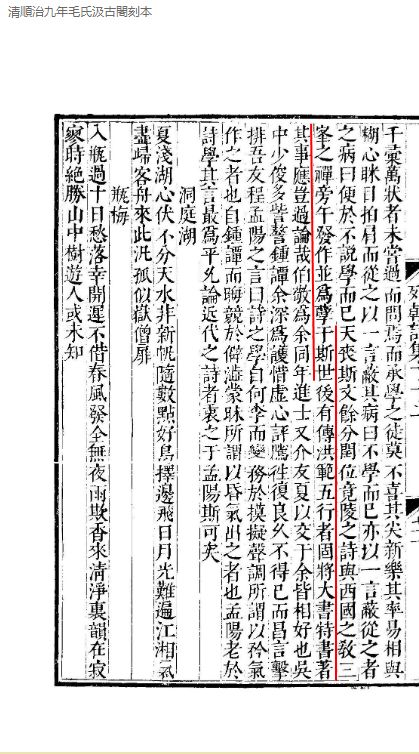 清順治九年毛氏汲古閣刻本
千彙萬狀者未嘗過而問焉而承學之徒莫不喜其尖新樂其率易相與
糊心眯目拍肩而從之以一言蔽其病曰不學而已亦以一言蔽從之者
之病曰便於不說學而已天喪斯文餘分閏位竟陵之詩與西國之教三
峯之禪旁午發作並爲孽于斯世後有傳洪範五行者固將大書特書著
其事應豈過論哉伯敬爲余同年進士又介友夏以交于余皆相好也吳
中少俊多訾謷鍾譚余深爲護惜虛心評騭往復良久不得已而昌言擊
排吾友程孟陽之言曰詩之學自何李而變務於摸擬聲調所謂以矜氣
作之者也自鍾譚而晦競於僻澁蒙昧所謂以昏氣出之者也孟陽老於
詩學其言最爲平允論近代之詩者衷之于孟陽斯可矣
洞庭湖
夏淺湖心伏不分天水非新帆隨數點好鳥擇邊飛日月光難遍江湘氣
盡歸客舟來此汎孤似嶽僧扉
瓶梅
入瓶過十日愁落幸開遲不借春風發全無夜雨欺香來清淨裏韻在寂
寥時絕勝山中樹遊人或未知